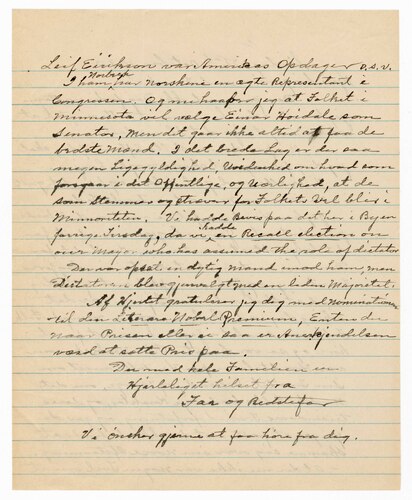 Leif Eirikson var Americas Opdager o.s.v.
Norberg
I ham, har Norskene en ægte Representant i
Congressen. Og nu haaber jeg at Folket i
Minnesota vil vælge Einar Hoidale som
Senator, men det gaar ikke altid at faa de
bedste Mænd. I det brede lag er der saa
megen Ligegyldighed, Uvidenhed om hvad som
foregaar i det Offentlige, og Uærlighed, at de
som Stemmer og stræver for Folkets Vel blir i
Minoriteten. Vi hadde Bevis paa det her i Byen
forrige Tirsdag, da vi hadde en Recall election on
our Mayor who has assumed the role of dictator
Der var opsat en dygtig mand imod ham, men
Dictatoren blev gjenvalgt med en liden Majoritet.
Af Hjertet gratulerer jeg dig med Nominationen
til den Literære Nobel Premium, Enten du
naar Prisen eller ei saa er Anerkjendelsen
værd at sætte Pris paa.
Du med hele Familien er
Hjerteligst hilset fra
Far og Bedstefar
Vi ønsker gjerne at faa høre fra dig.